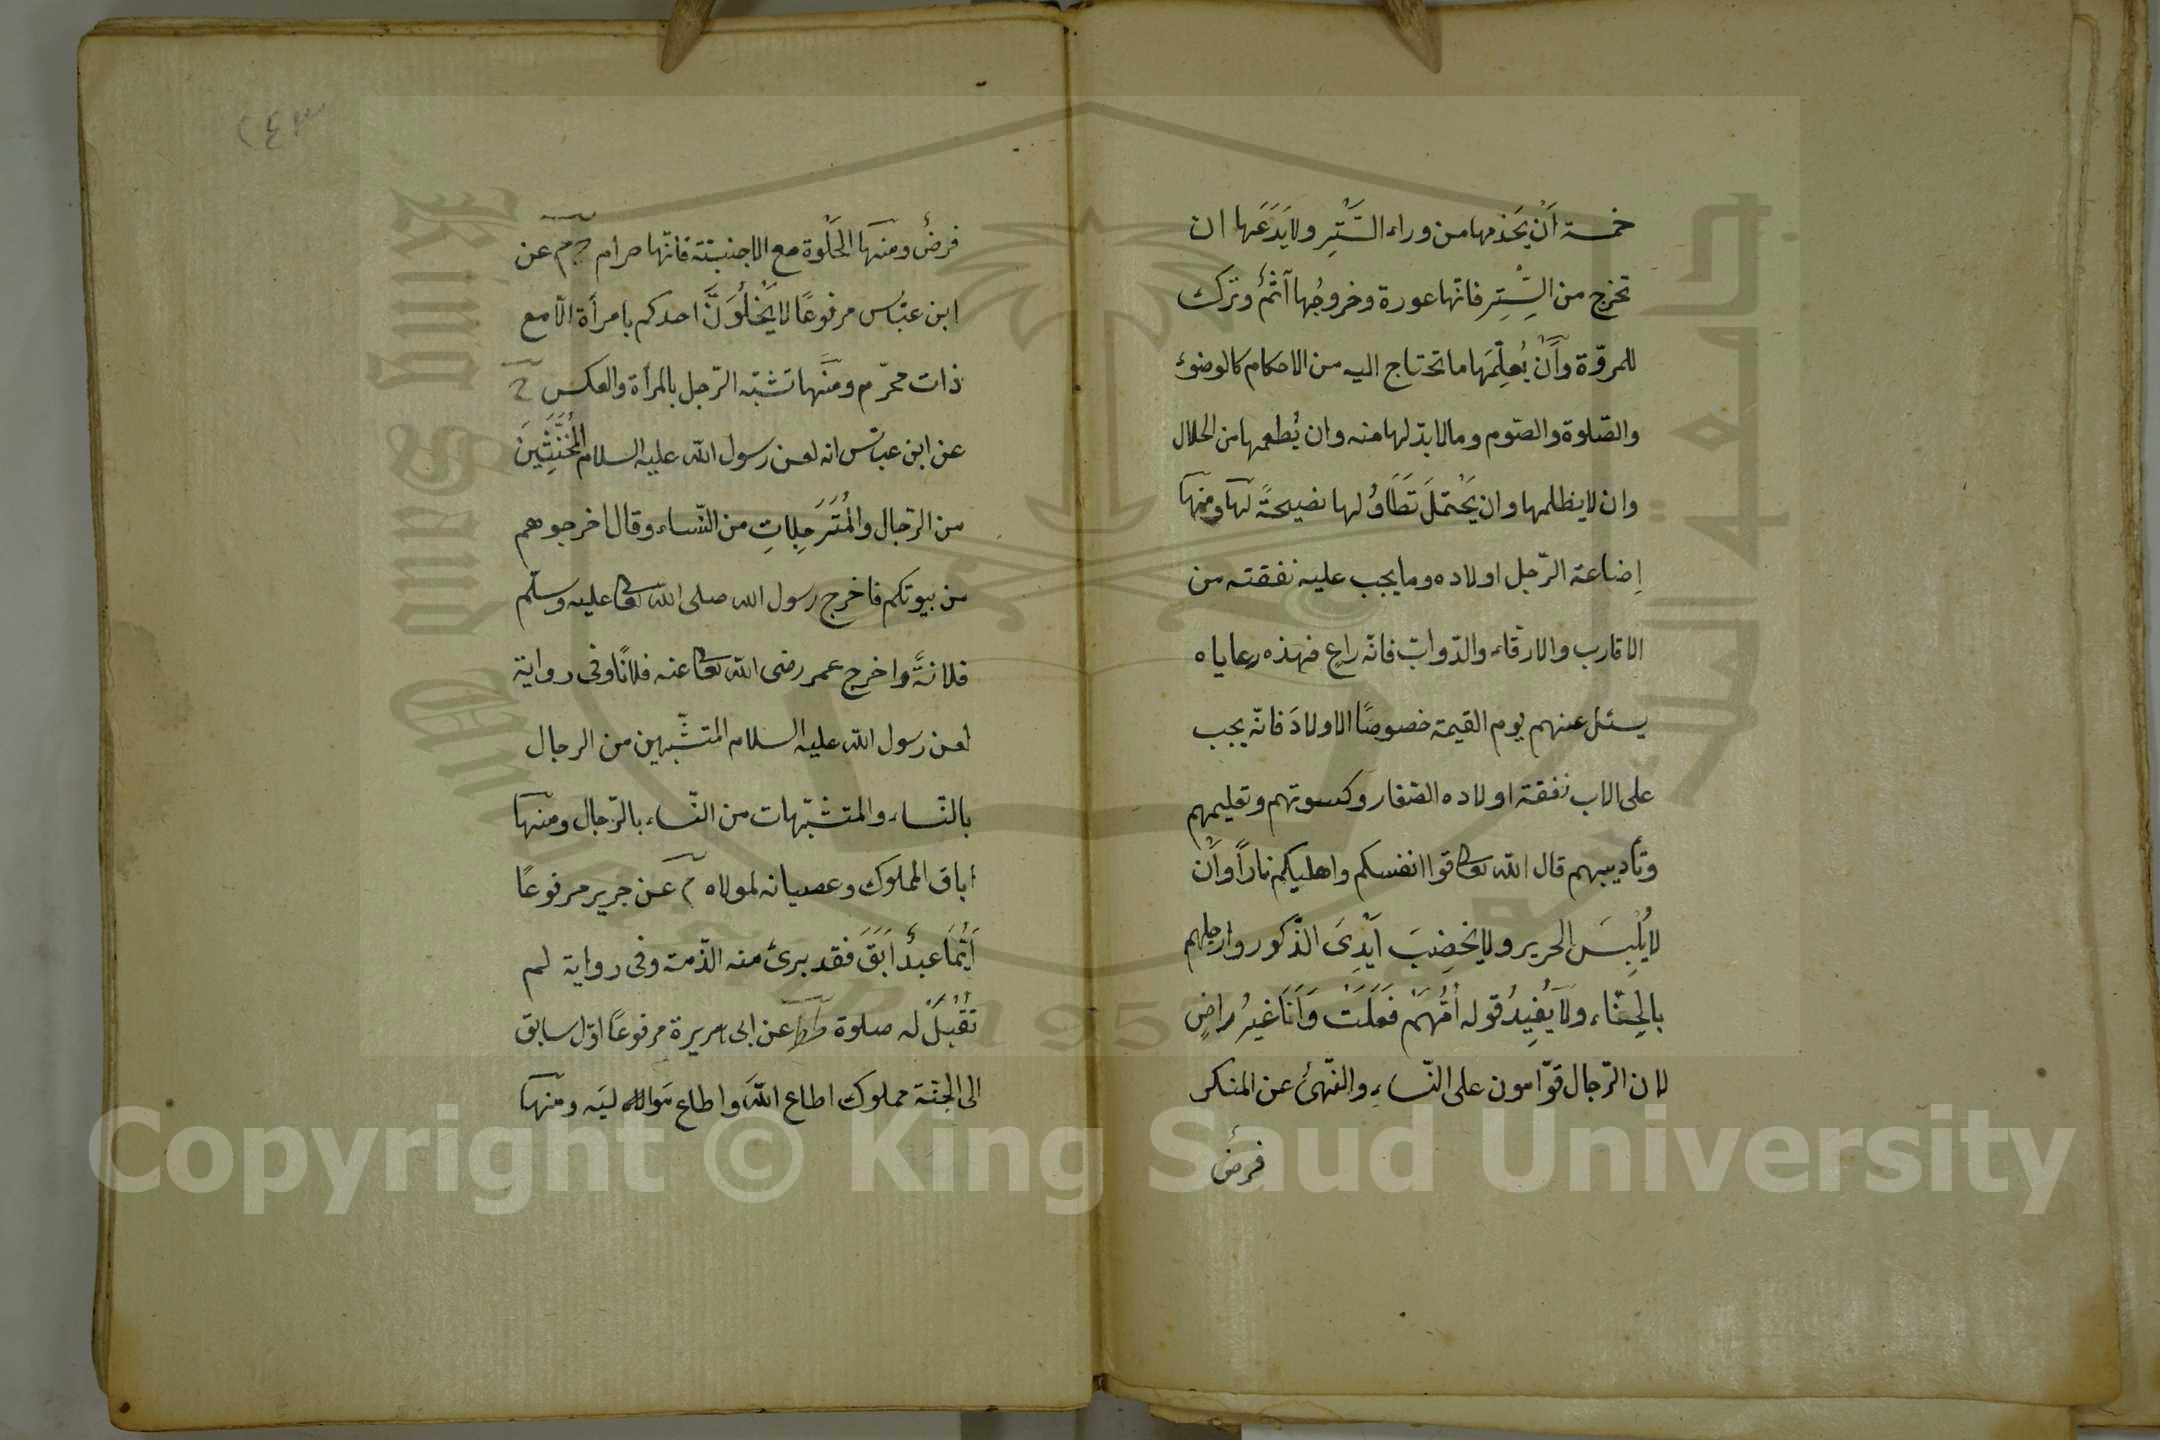 خمسة اَنْ يَخدمها من وراء السِّتْرِ ولا يَدَعَها ان
تخرج من السِّتِرِ فانها عورة وخروجُها آثمٌ وترك
للمروّة وَاَنْ يُعلِّمَها ما تحتاج اليه من الاحكام كالوضوء
والصّلوة والصّوم وما لا بدّ لها منه وان يُطعمها من الحلال
وان لا يظلمها وان يَحْتملَ تَطَاوُلها نصيحةً لها ومنها
إضاعة الرّجل اولاده وما يجب عليه نفقته من
الاقارب والارقّاء والدّوابّ فانّه راعٍ فهذه رعاياه
يسئل عنهم يوم القيمة خصوصًا الاولادَ فانّه يجب
على الاب نفقة اولاده الصّغار وكسوتهم وتعليمهم
وتأديبهم قال الله تعالى قوا انفسكم واهليكم نارًا وَاَنْ
لا يُلْبِسَ الحرير ولا يخضِبَ اَيْدِىَ الذّكور وارجلهم
بالحِنّاء ولا يُفيدُ قوله اُمُّهُمْ فَعَلَتْ وَاَنَا غيرُ راضٍ
لان الرّجال قوّامون على النّساءِ والنّهىُ عن المنكر
فرضٌ
فرضٌ ومنها الخَلْوة مع الاجنبيّة فانّها حرام خ م عن
ابن عبّاس مرفوعًا لا يَخْلُوَنَّ احدكم بامرأة الّا مع
ذات محرّم ومنها تشبّه الرّجل بالمرأة والعكس خ
عن ابن عبّاس انه لعن رسول الله عليه السلام المُخَنَّثِينَ
من الرّجال والمُتَرَجِّلاتِ من النّساء وقال اخرجوهم
من بيوتكم فاخرج رسول الله صلى الله تعالى عليه وسلّم
فلانةً واخرج عمر رضى الله تعالى عنه فلانًا وفى رواية
لعن رسول الله عليه السلام المتشبّهين من الرجال
بالنّساء والمتشبّهات من النّساء بالرّجال ومنها
اباق المملوك وعصيانه لمولاه م عن جرير مرفوعًا
اَيُّمَا عبدٌ اَبَقَ فقد برئ منه الذّمة وفى رواية لم
تُقْبَلْ له صلوة طط عن ابى هريرة مرفوعًا اوّل سابق
الى الجنّة مملوك اطاع اللّهَ واطاع مَوَاليَه ومنها